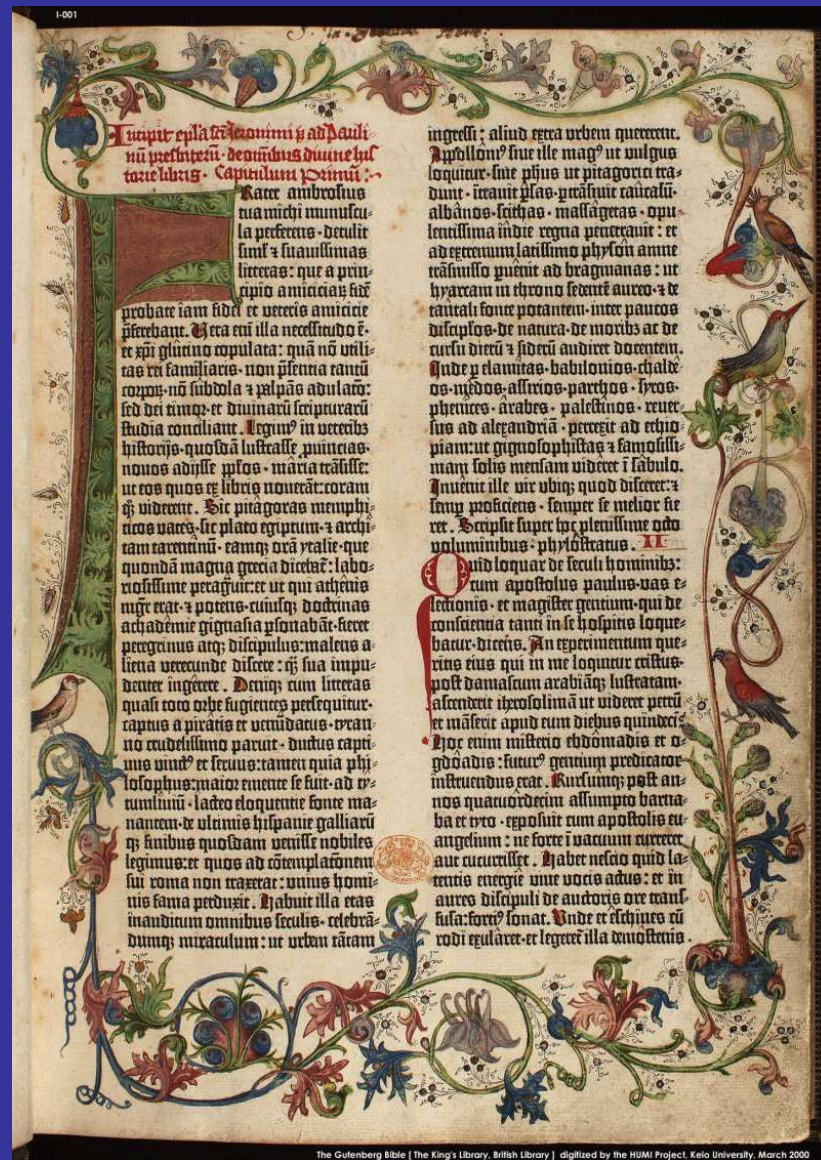 I-001
Incipit epl̄a scī Jeronimi p̄ ad Pauli-
nū presbiterū · de om̄ibus diuine his
torie libris · Capitulum Primū :
Frater ambrosius
tua michi munuscu-
la perferens · detulit
simĺ ⁊ suauissimas
litteras : que a prin-
cipio amiciciaꝝ fidē
probate iam fidei et veteris amicicie
p̄ferebant. Vera em̄ illa necessitudo ē ·
et xp̄i glutino copulata : quā nō utili-
tas rei familiaris · non p̄sentia tantū
corpoꝝ · nō subdola ⁊ palpās adulatō :
sed dei timor · et diuinarū scripturarū
studia conciliant. Legimꝰ in veteribꝫ
historijs · quosdā lustrasse puincias ·
nouos adijsse pplōs · maria trāsisse :
ut eos quos ex libris nouerāt : coram
qꝫ viderent. Sic pitagoras memphi-
ticos vates · sic plato egiptum · ⁊ archi-
tam tarentinū · eamqꝫ orā ytalie · que
quondā magna grecia dicebat̄ : labo-
riosissime peragᷓuit : et ut qui athenis
mgr̄ erat · ⁊ potens · cuiusqꝫ doctrinas
achademie gignasia psonabāt · fieret
peregrinus atqꝫ discipulus : malens a-
liena verecunde discere : qꝫ sua impu-
denter ingerere. Deniqꝫ cum litteras
quasi toto orbe fugientes persequitur ·
captus a piratis et venūdatus · tyran-
no crudelissimo paruit · ductus capti-
uus vinctꝰ et seruus : tamen quia phi-
losophus : maior emente se fuit · ad ty-
tumliuiū · lacteo eloquentie fonte ma-
nantem · de vltimis hispanie galliarū
qꝫ finibus quosdam venisse nobiles
legimus : et quos ad cōtemplatōnem
sui roma non traxerat : unius homi-
nis fama perduxit. Habuit illa etas
inauditum omnibus seculis · celebrā-
dumqꝫ miraculum : ut vrbem tātam
ingressi : aliud extra vrbem quererent.
Appolloniꝰ siue ille magꝰ ut vulgus
loquitur · siue ph̄us ut pitagorici tra-
dunt · ītrauit psas · ptrāsiuit caucasū ·
albanos · scithas · massagetas · opu-
lentissima indie regna penetrauit : et
ad extremum latissimo physon amne
trāsmisso puenit ad bragmanas : ut
hyarcam in throno sedentē aureo · ⁊ de
tantali fonte potantem · inter paucos
discipłos · de natura · de moribꝫ ac de
cursu dierū ⁊ siderū audiret docentem.
Inde p elamitas · babilonios · chalde-
os · medos · assirios · parthos · syros ·
phenices · arabes · palestinos · reuer-
sus ad alexandriā · perrexit ad ethio-
piam : ut gignosophistas ⁊ famosissi-
mam solis mensam videret ī sabulo.
Inuenit ille vir vbiqꝫ quod disceret : ⁊
semp proficiens · semper se melior fie
ret. Scripsit super hoc plenissime octo
voluminibus · phylostratus. II
Quid loquar de seculi hominibꝫ :
cum apostolus paulus · vas e-
lectionis · et magister gentium · qui de
consciencia tanti in se hospitis loque-
batur · dicens. An experimentum que-
ritis eius qui in me loquitur cristus ·
post damascum arabiāqꝫ lustratam ·
ascenderit iherosolimā ut videret petrū
et māserit apud eum diebus quindecī
Hoc enim misterio ebdomadis et o-
gdoadis : futurꝰ gentium predicator
instruendus erat. Rursumqꝫ post an-
nos quatuordecim assumpto barna-
ba et tyto · exposuit cum apostolis eu-
angelium : ne forte ī vacuum curreret
aut cucurrisset. Habet nescio quid la-
tentis energie viue vocis actus : et in
aures discipuli de auctoris ore trans
fusa : fortiꝰ sonat. Vnde et eschines cū
rodi exularet · et legeret̄ illa demostenis
The Gutenberg Bible [ The King's Library, British Library ] digitized by the HUMI Project, Keio University, March 2000